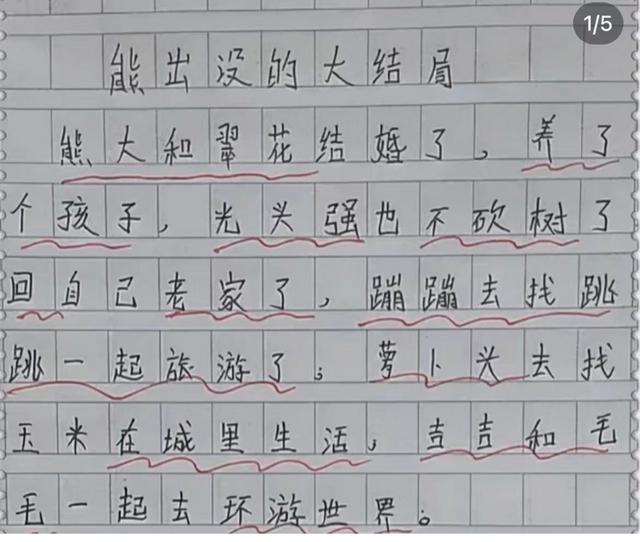 1/5
熊出没的大结局
熊大和翠花结婚了，养了
个孩子，光头强也不砍树了
回自己老家了，蹦蹦去找跳
跳一起旅游了。萝卜头去找
玉米在城里生活，吉吉和毛
毛一起去环游世界。